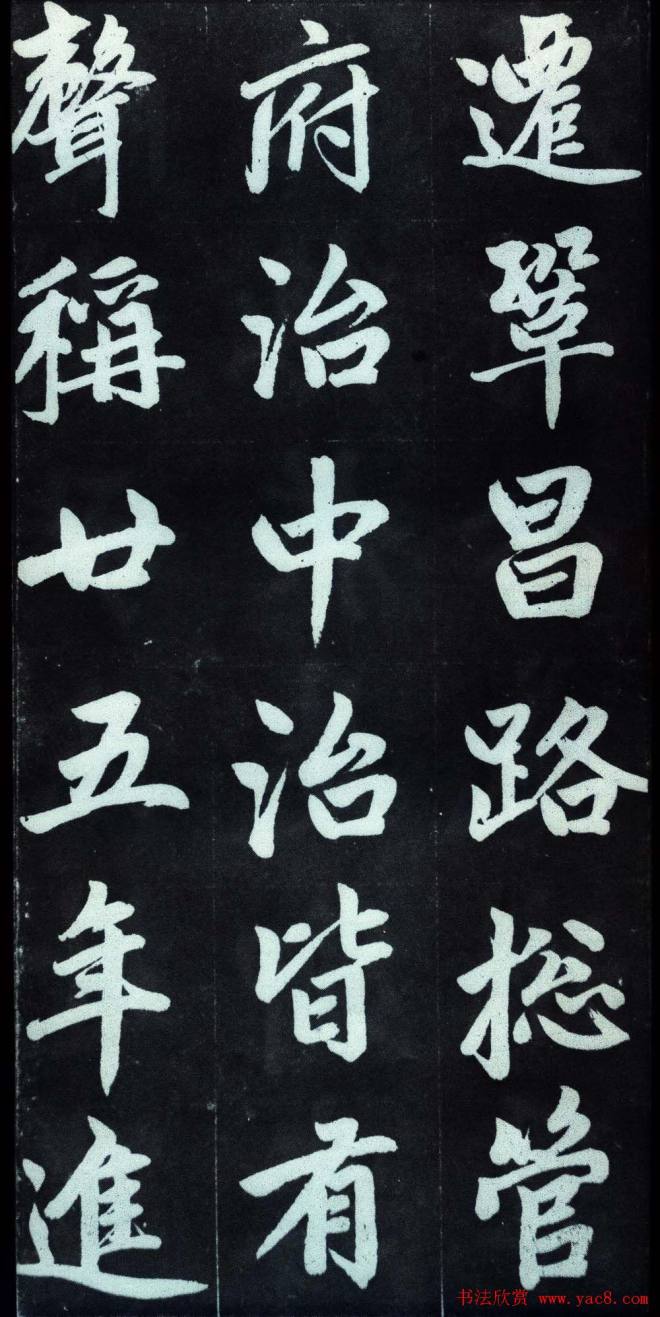 遷鞏昌路揔管
府治中治皆有
聲稱廿五年進
书法欣赏 www.yac8.com